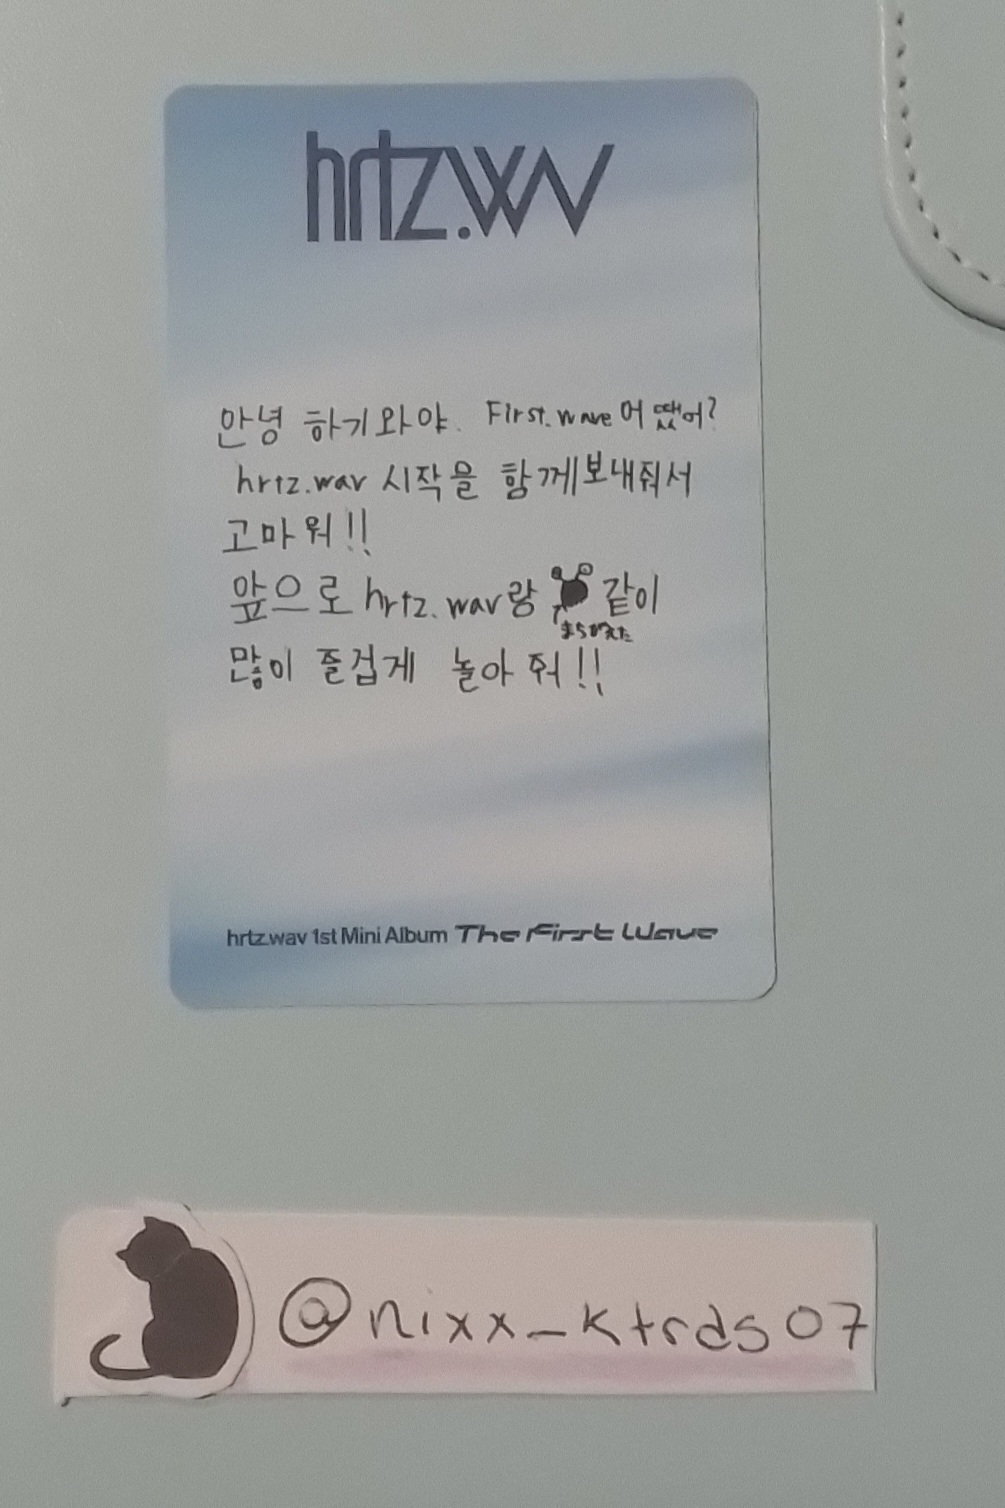 hrtz.wv
안녕 하기와야. First.wave 어땠어?
hrtz.wav 시작을 함께보내줘서
고마워!!
앞으로 hrtz.wav랑 같이
まちがえた
많이 즐겁게 놀아줘!!
hrtz.wav 1st Mini Album The First Wave
@nixx_ktrds07